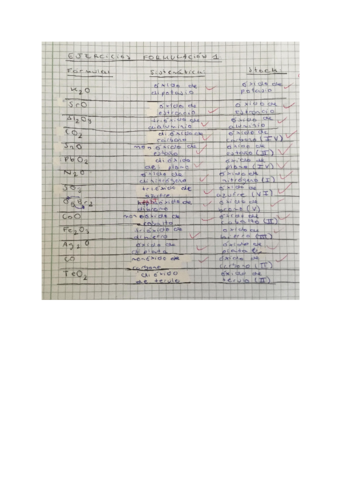 EJERCICIOS FORMULACIÓN 1
Fórmulas Sistemática Stock
K₂O óxido de dipotasio óxido de potasio
SrO óxido de estroncio óxido de estroncio
Al₂O₃ trióxido de dialuminio óxido de aluminio
CO₂ dióxido de carbono óxido de carbono (IV)
SnO monóxido de estaño óxido de estaño (II)
PbO₂ dióxido de plomo óxido de plomo (IV)
N₂O óxido de dinitrógeno óxido de nitrógeno (I)
SO₃ trióxido de azufre óxido de azufre (VI)
óxido de (V)
CoO monóxido de cobalto óxido de cobalto (II)
Fe₂O₃ trióxido de dihierro óxido de hierro (III)
Ag₂O óxido de diplata óxido de
CO monóxido de carbono óxido de carbono (II)
TeO₂ dióxido de telurio óxido de